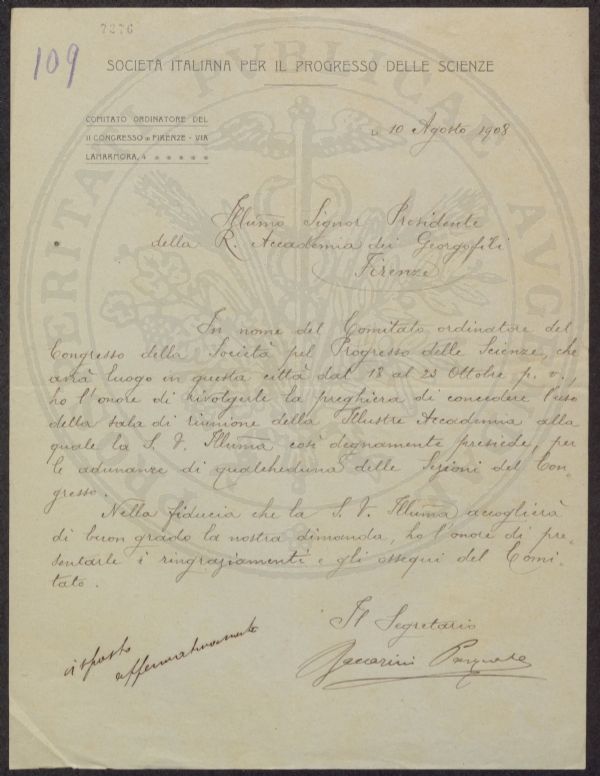 7276
109
SOCIETÀ ITALIANA PER IL PROGRESSO DELLE SCIENZE
COMITATO ORDINATORE DEL
II CONGRESSO IN FIRENZE - VIA
LAMARMORA, 4
Li 10 Agosto 1908
Illumo Signor Presidente
della R. Accademia dei Georgofili
Firenze
In nome del Comitato ordinatore del
Congresso della Società pel Progresso delle Scienze, che
avrà luogo in questa città dal 18 al 23 Ottobre p. v.,
ho l'onore di rivolgerle la preghiera di concedere l'uso
della sala di riunione della Illustre Accademia alla
quale la S. V. Illuma così degnamente presiede, per
le adunanze di qualcheduna delle Sezioni del Con-
gresso.
Nella fiducia che la S. V. Illuma accoglierà
di buon grado la nostra dimanda, ho l'onore di pre-
sentarle i ringraziamenti e gli ossequi del Comi-
tato.
Il Segretario
Baccarini Pasquale
risposto
affermativamente